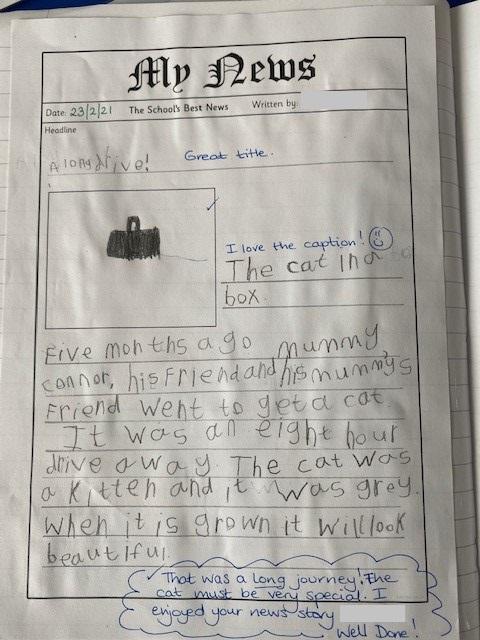 My News
Date: 23/2/21 The School's Best News Written by:
Headline
A long drive! Great title.
I love the caption!
The cat in a
box.
Five months ago mummy
connor, his Friend and his mummy's
Friend went to get a cat.
It was an eight hour
drive away. The cat was
a kitten and it was grey.
when it is grown it will look
beautiful.
That was a long journey! The
cat must be very special. I
enjoyed your news story
Well Done!